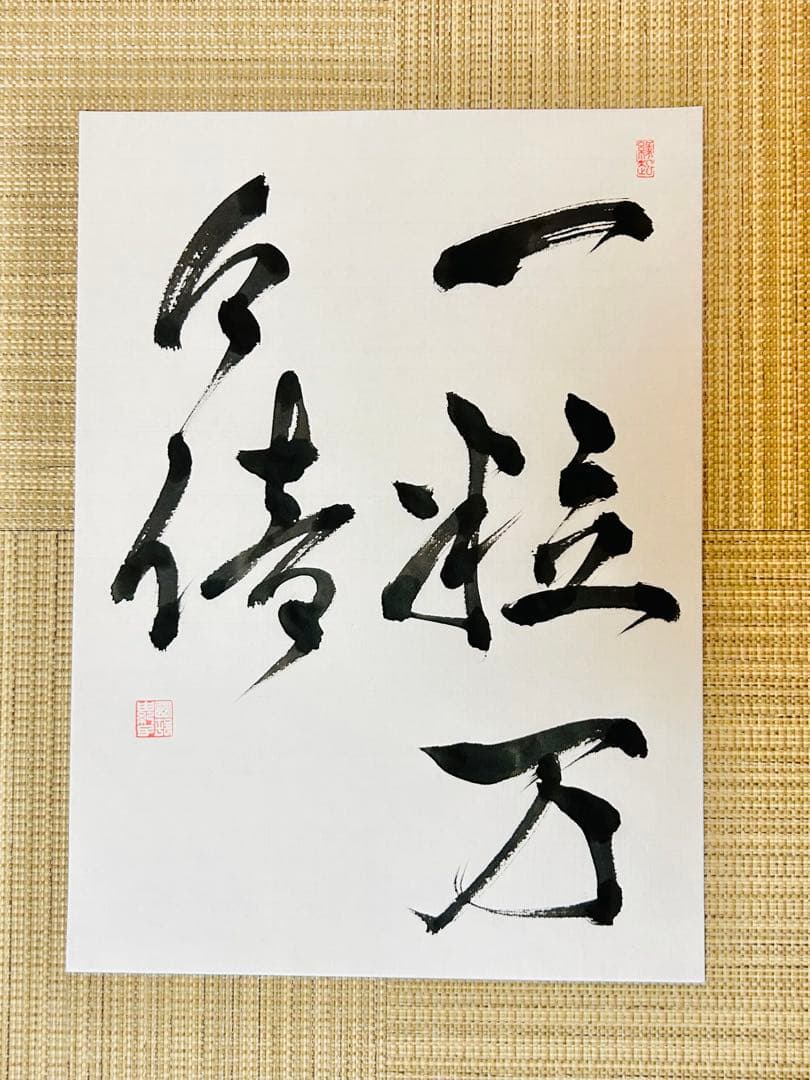 一粒万
々倍